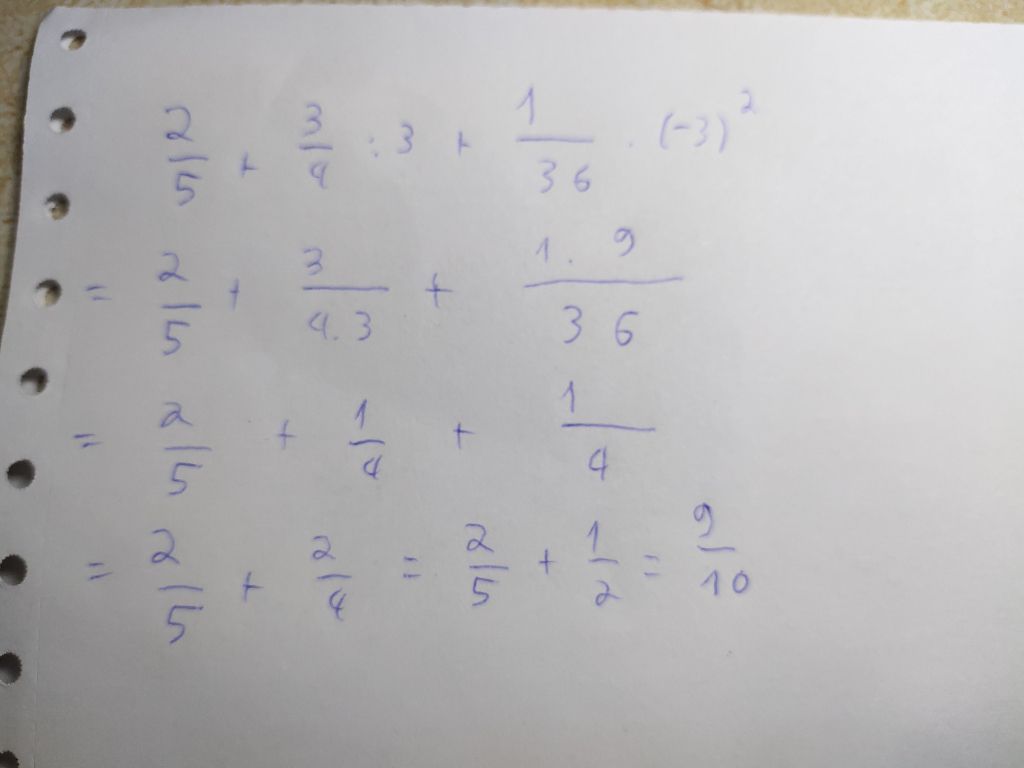 2/5 + 3/4 : 3 + 1/36 . (-3)²
= 2/5 + 3/4.3 + 1. 9/36
= 2/5 + 1/4 + 1/4
= 2/5 + 2/4 = 2/5 + 1/2 = 9/10